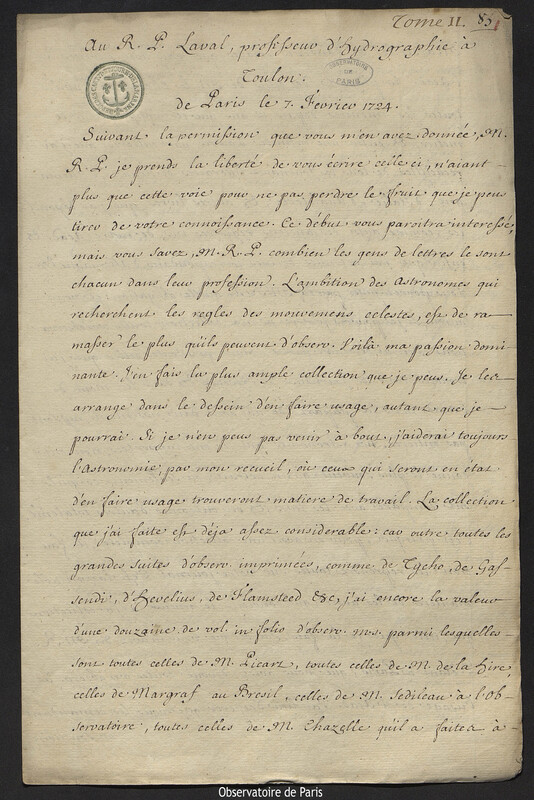 Tome II. 83
Au R. P. Laval, professeur d'hydrographie à
Toulon.
OBSERVATOIRE
DE
PARIS
de Paris le 7. Fevrier 1724.
Suivant la permission que vous m'en avez donnée, M.
R. P. je prends la liberté de vous écrire celle ci, n'aiant
plus que cette voie pour ne pas perdre le fruit que je peus
tirer de votre connoissance. Ce début vous paroitra interessé,
mais vous savez, M. R. P. combien les gens de lettres le sont
chacun dans leur profession. L'ambition des Astronomes qui
recherchent les regles des mouvemens celestes, est de ra-
masser le plus qu'ils peuvent d'observ. Voilà ma passion domi-
nante. J'en fais la plus ample collection que je peus. Je les
arrange dans le dessein d'en faire usage, autant que je
pourrai. Si je n'en peus pas venir à bout, j'aiderai toujours
l'Astronomie, par mon recueil, où ceux qui seront en état
d'en faire usage trouveront matiere de travail. La collection
que j'ai faite est déja assez considerable: car outre toutes les
grandes suites d'observ. imprimées, comme de Tycho, de Gas-
sendi, d'Hevelius, de Flamsteed &c, j'ai encore la valeur
d'une douzaine de vol. in folio d'observ. ms. parmi lesquelles
sont toutes celles de M. Picart, toutes celles de M. de la Hire,
celles de Margraf au Bresil, celles de M. Sedileau à l'Ob-
servatoire, toutes celles de M. Chazelle qu'il a faites à
Observatoire de Paris